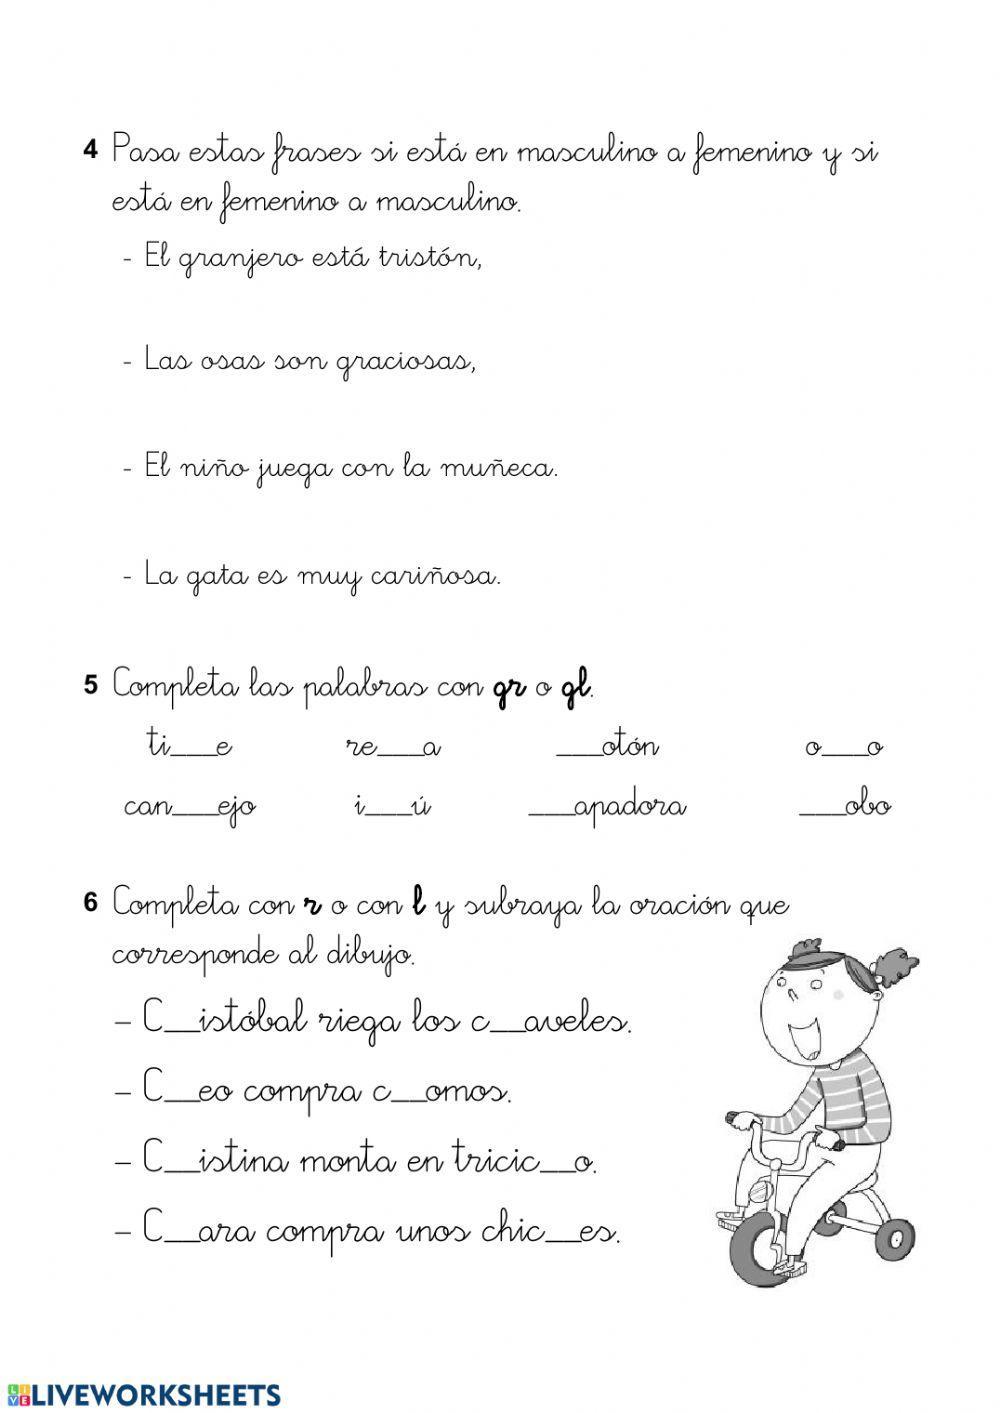 4 Pasa estas frases si está en masculino a femenino y si
está en femenino a masculino.
- El granjero está tristón,
- Las osas son graciosas,
- El niño juega con la muñeca.
- La gata es muy cariñosa.
5 Completa las palabras con gr o gl.
ti___e re___a ___otón o___o
can___ejo i___ú ___apadora ___obo
6 Completa con r o con l y subraya la oración que
corresponde al dibujo.
– C__istóbal riega los c__aveles.
– C__eo compra c__omos.
– C__istina monta en tricic__o.
– C__ara compra unos chic__es.
LIVE LIVEWORKSHEETS